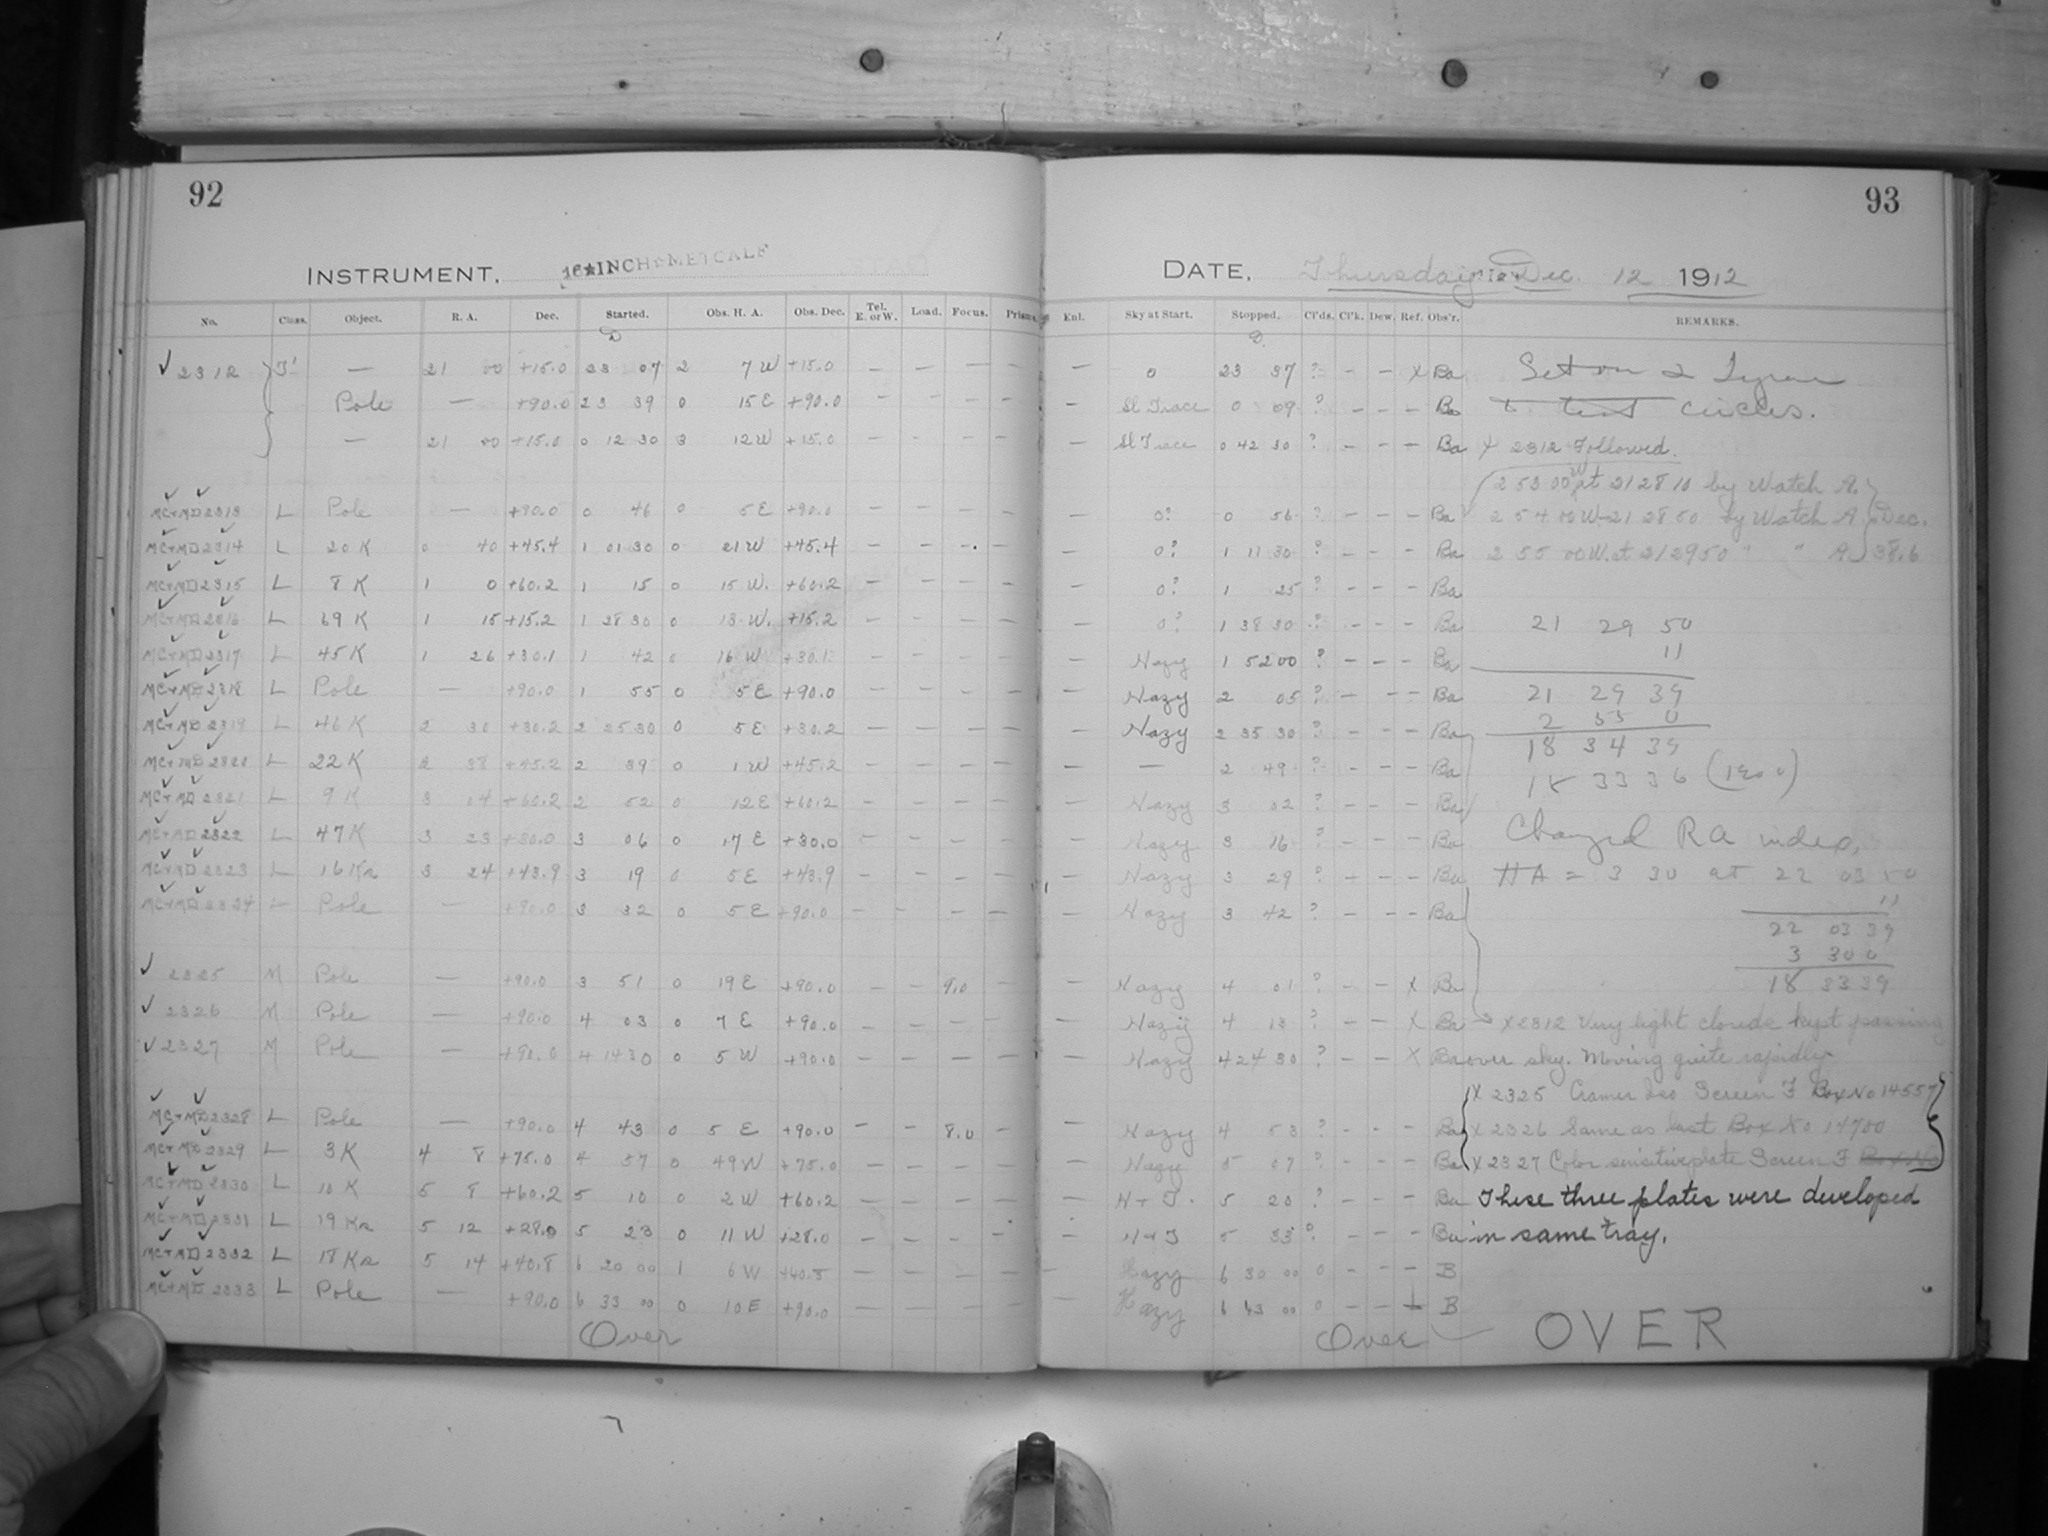 92
INSTRUMENT, 16★INCH☆METCALF
No. Class. Object. R. A. Dec. Started. Obs. H. A. Obs. Dec. Tel. E. or W. Load. Focus. Prisms.
✓ 2312 — 21 00 +15.0 23 07 2 7 W +15.0 — — — —
Pole — +90.0 23 39 0 15 E +90.0 — — — —
— 21 00 +15.0 0 12 30 3 12 W +15.0 — — — —
MC+MD 2313 L Pole — +90.0 0 46 0 5 E +90.0
MC+MD 2314 L 20 K 0 40 +45.4 1 01 30 0 21 W +45.4 — — — —
MC+MD 2315 L 8 K 1 0 +60.2 1 15 0 15 W. +60.2 — — — —
MC+MD 2316 L 69 K 1 15 +15.2 1 28 30 0 13 W. +15.2 — — — —
MC+MD 2317 L 45 K 1 26 +30.1 1 42 0 16 W +30.1 — — — —
MC+MD 2318 L Pole — +90.0 1 55 0 5 E +90.0 — — — —
MC+MD 2319 L 46 K 2 30 +30.2 2 25 30 0 5 E +30.2 — — — —
MC+MD 2320 L 22 K 2 38 +45.2 2 39 0 1 W +45.2 — — — —
MC+MD 2321 L 9 K 3 04 +60.2 2 52 0 12 E +60.2 — — — —
MC+MD 2322 L 47 K 3 23 +30.0 3 06 0 17 E +30.0 — — — —
MC+MD 2323 L 16 Ka 3 24 +43.9 3 19 0 5 E +43.9 — — — —
MC+MD 2324 L Pole — +90.0 3 32 0 5 E +90.0 — — — —
✓ 2325 M Pole — +90.0 3 51 0 19 E +90.0 — — 9.0 —
✓ 2326 M Pole — +90.0 4 03 0 7 E +90.0 — — — —
✓ 2327 M Pole — +90.0 4 14 30 0 5 W +90.0 — — — —
MC+MD 2328 L Pole — +90.0 4 43 0 5 E +90.0 — — 8.0 —
MC+MD 2329 L 3 K 4 8 +75.0 4 57 0 49 W +75.0 — — — —
MC+MD 2330 L 10 K 5 8 +60.2 5 10 0 2 W +60.2 — — — —
MC+MD 2331 L 19 Ka 5 12 +28.0 5 23 0 11 W +28.0 — — — —
MC+MD 2332 L 18 Ka 5 14 +40.8 6 20 00 1 6 W +40.8 — — — —
MC+MD 2333 L Pole — +90.0 6 33 00 0 10 E +90.0 — — — —
Over
93
DATE, Thursday Dec. 12 1912
Enl. Sky at Start. Stopped. Cl'ds. Cl'k. Dew. Ref. Obs'r. REMARKS.
— 0 23 37 ? — — X Ba
— Sl Trace 0 09 ? — — — Ba
— Sl Trace 0 42 30 ? — — — Ba
— 0? 0 56 ? — — — Ba
— 0? 1 11 30 ? — — — Ba
— 0? 1 25 ? — — — Ba
— 0? 1 38 30 ? — — — Ba
— Hazy 1 52 00 ? — — — Ba
— Hazy 2 05 ? — — — Ba
— Hazy 2 35 30 ? — — — Ba
— — 2 49 ? — — — Ba
— Hazy 3 02 ? — — — Ba
— Hazy 3 16 ? — — — Ba
— Hazy 3 29 ? — — — Ba
— Hazy 3 42 ? — — — Ba
— Hazy 4 01 ? — — X Ba
— Hazy 4 13 ? — — X Ba
— Hazy 4 24 30 ? — — X Ba
— Hazy 4 53 ? — — — Ba
— Hazy 5 07 ? — — — Ba
— H + T. 5 20 ? — — — Ba
— H + T 5 33 ? — — — Ba
— Hazy 6 30 00 0 — — — B
— Hazy 6 43 00 0 — — — B
Over
Set on α
to test circles.
X 2312 Followed.
2 53 00 at 21 28 10 by Watch A.
2 54 00 W—21 28 50 by Watch A Dec.
2 55 00 W. at 21 29 50 " " A 38.6
21 29 50
11
21 29 39
2 55 0
18 34 39
18 33 36 (1900)
Changed RA index,
HA = 3 30 at 22 03 50
11
22 03 39
3 30 0
18 33 39
X 2312 Very light clouds kept passing
over sky. Moving quite rapidly.
X 2325 Cramer Iso Screen F Box No 14557
X 2326 Same as last Box No 14700
X 2327 Color sensitive plate Screen F Box No
These three plates were developed
in same tray.
OVER